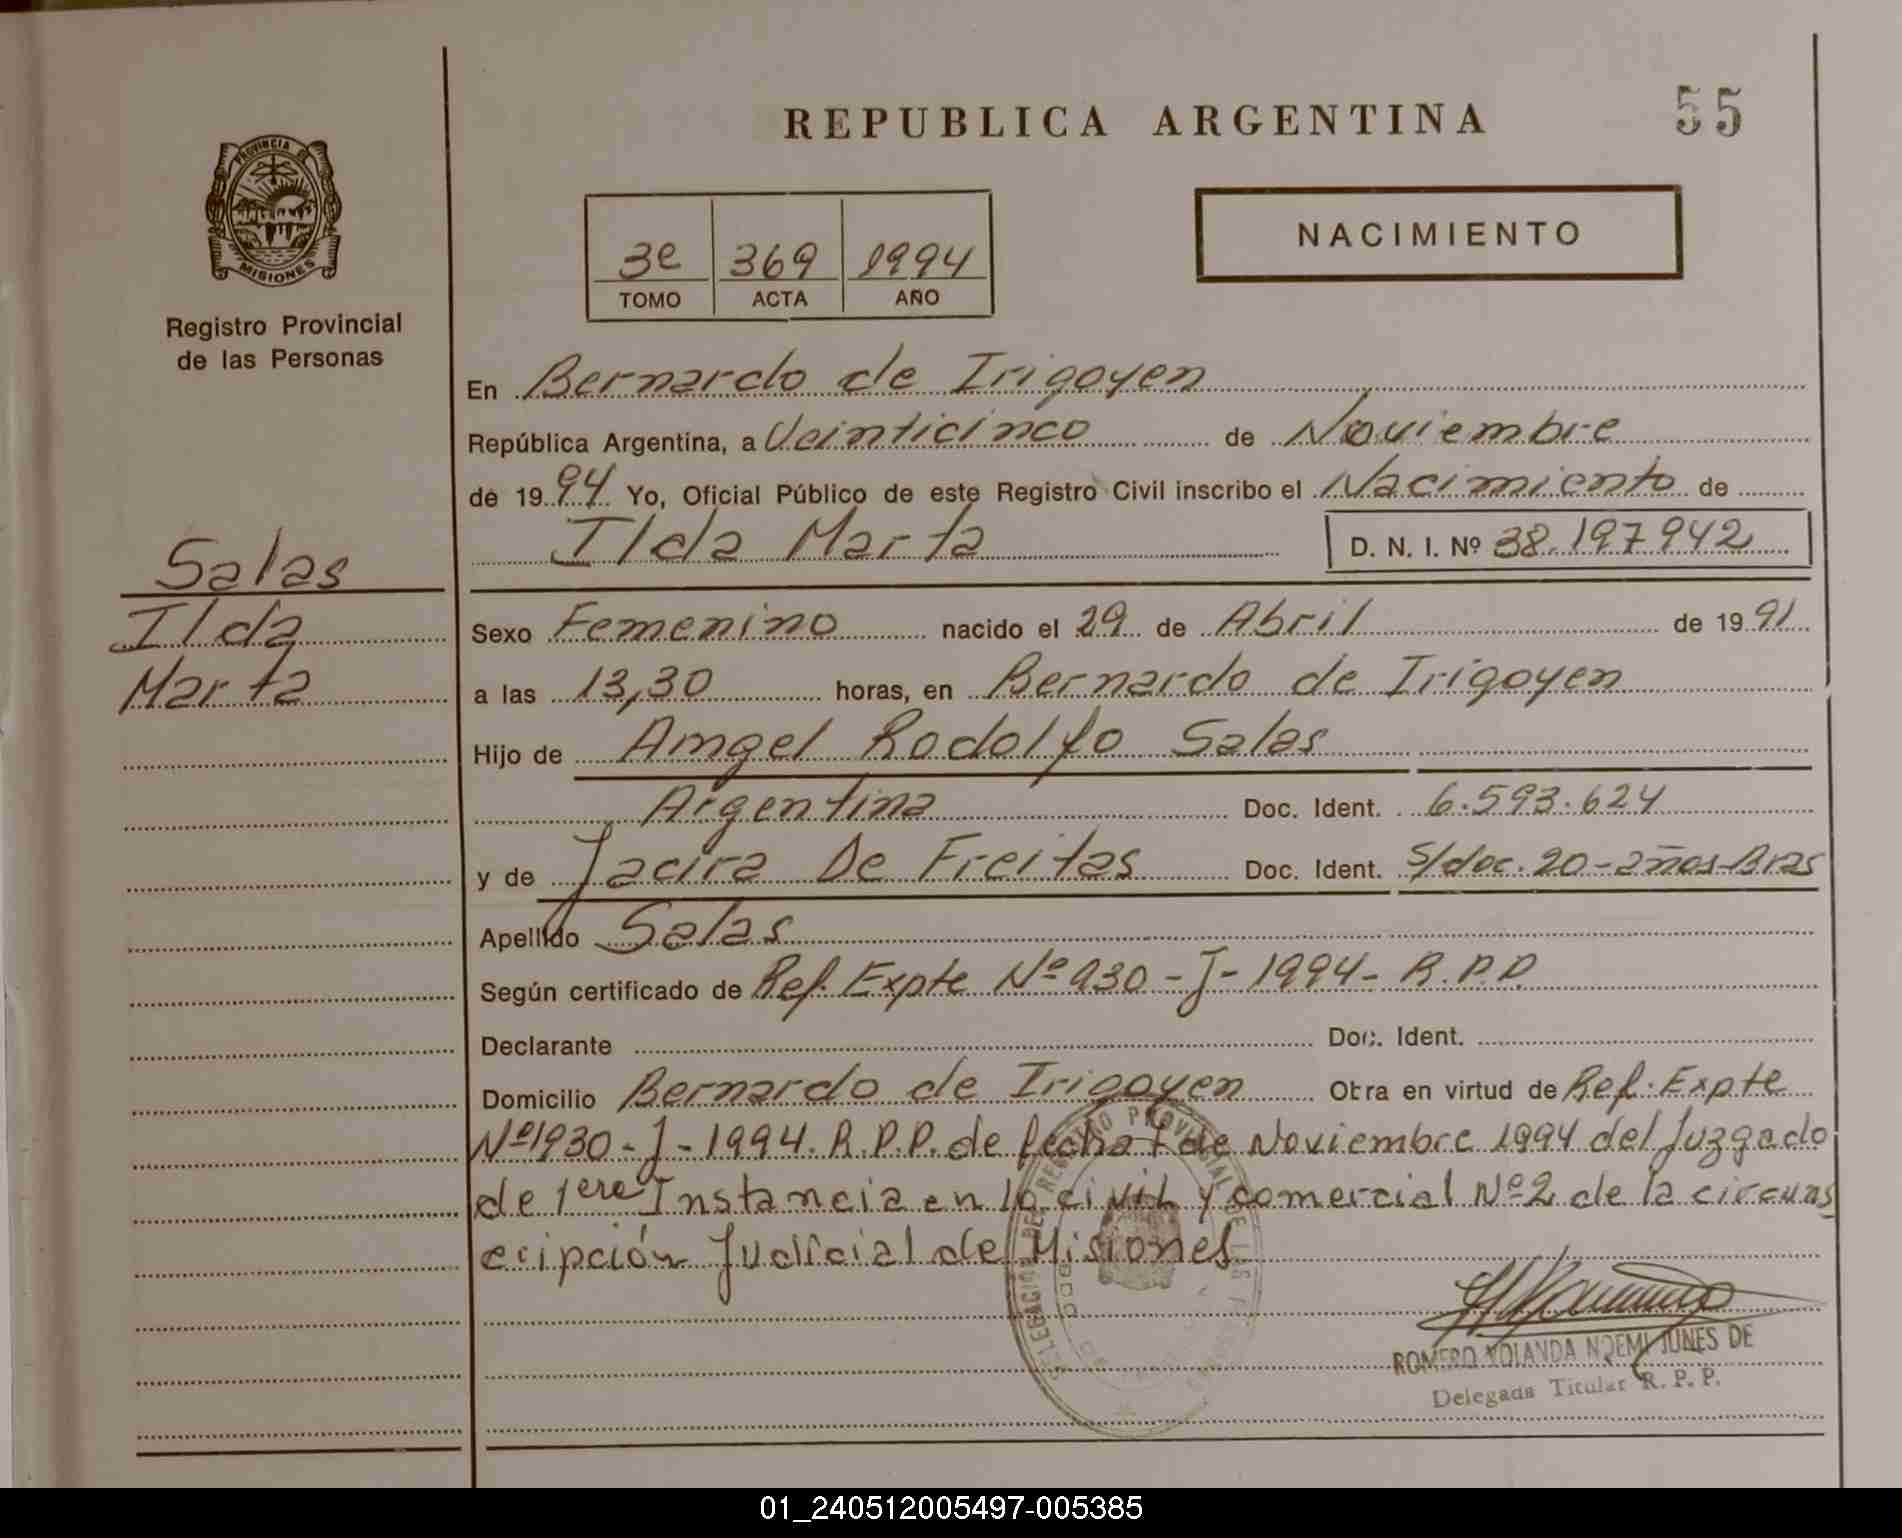 REPUBLICA ARGENTINA
55
PROVINCIA DE
MISIONES
Registro Provincial
de las Personas
NACIMIENTO
3e 369 1994
TOMO ACTA AÑO
En Bernardo de Irigoyen
República Argentina, a Veinticinco de Noviembre
de 1994 Yo, Oficial Público de este Registro Civil inscribo el Nacimiento de
Ilda Marta D. N. I. Nº 38.197942
Salas
Ilda
Marta
Sexo Femenino nacido el 29 de Abril de 1991
a las 13,30 horas, en Bernardo de Irigoyen
Hijo de Amgel Rodolfo Salas
Argentina Doc. Ident. 6.593.624
y de Jacira De Freitas Doc. Ident. S/doc. 20-años-Bras
Apellido Salas
Según certificado de Ref. Expte Nº 930-J-1994- R.P.P.
Declarante Doc. Ident.
Domicilio Bernardo de Irigoyen Obra en virtud de Ref. Expte
Nº1930-J-1994. R.P.P. de fecha de Noviembre 1994 del Juzgado
de 1ere Instancia en lo civil y comercial Nº2 de la circuns
cripción Judicial de Misiones
ROMERO YOLANDA NOEMI JUNES DE
Delegada Titular R. P. P.
01_240512005497-005385